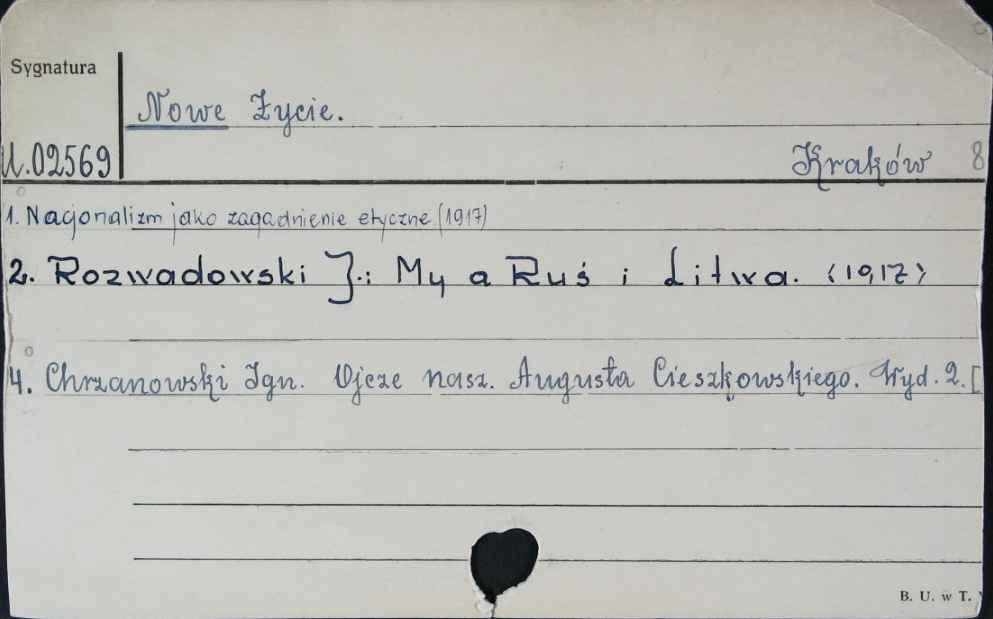 Sygnatura
Nowe Życie.
U.02569
Kraków 8
1. Nacjonalizm jako zagadnienie etyczne (1917)
2. Rozwadowski J.: My a Ruś i Litwa. (1917)
4. Chrzanowski Ign. Ojcze nasz. Augusta Cieszkowskiego. Wyd. 2. [
B. U. w T.